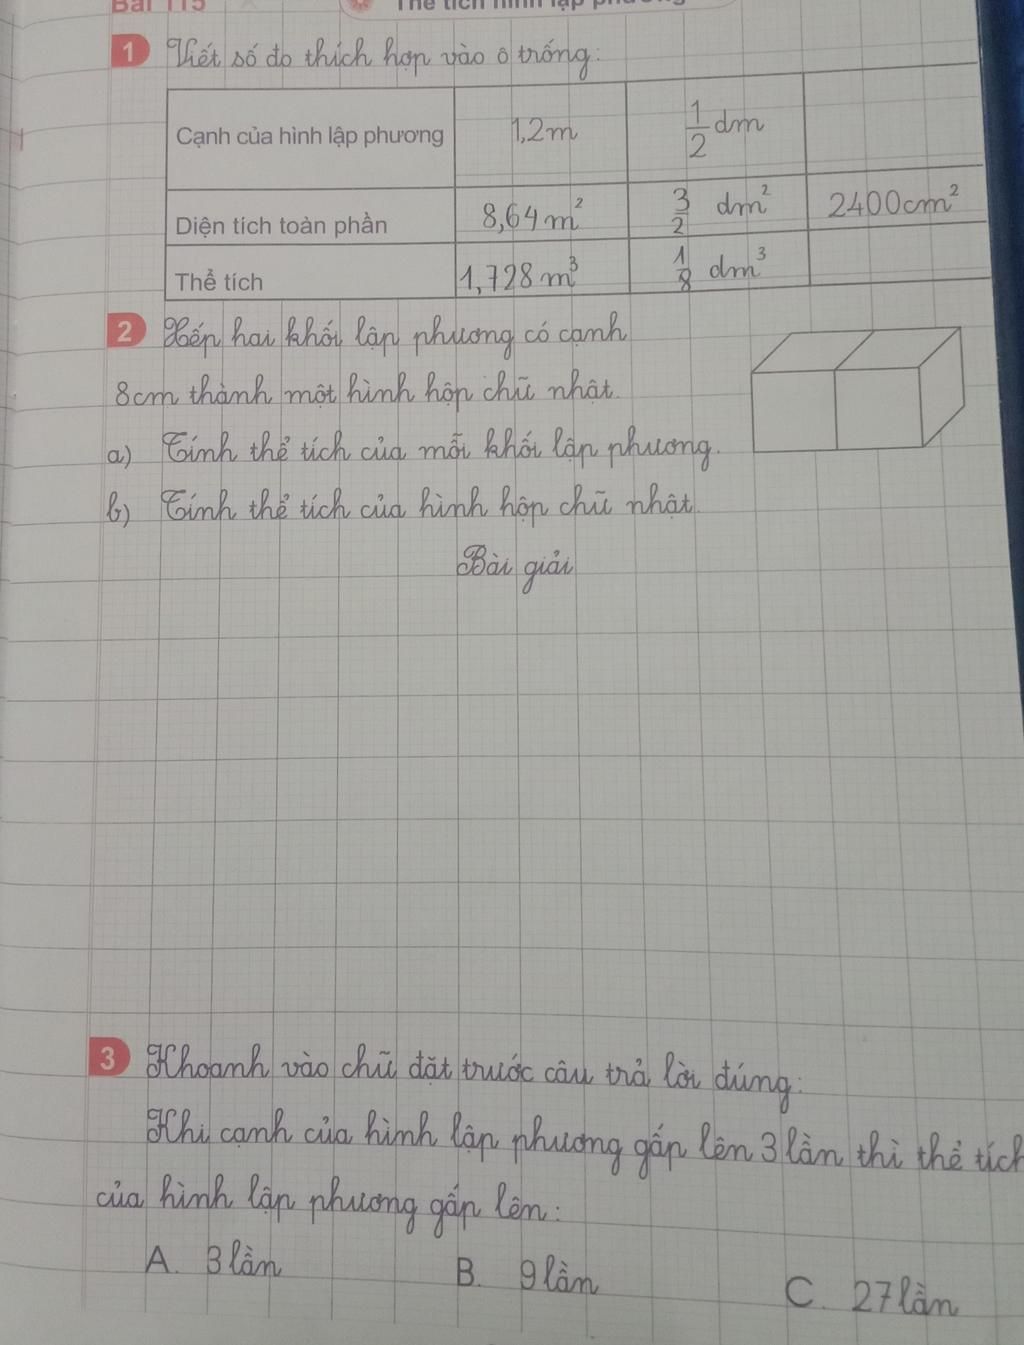 Bài 115 Thể tích hình lập phương
1 Viết số đo thích hợp vào ô trống:
Cạnh của hình lập phương 1,2m 1/2 dm
Diện tích toàn phần 8,64 m² 3/2 dm² 2400cm²
Thể tích 1,728 m³ 1/8 dm³
2 Xếp hai khối lập phương có cạnh
8cm thành một hình hộp chữ nhật.
a) Tính thể tích của mỗi khối lập phương.
b) Tính thể tích của hình hộp chữ nhật.
Bài giải
3 Khoanh vào chữ đặt trước câu trả lời đúng:
Khi cạnh của hình lập phương gấp lên 3 lần thì thể tích
của hình lập phương gấp lên:
A. 3 lần B. 9 lần C. 27 lần